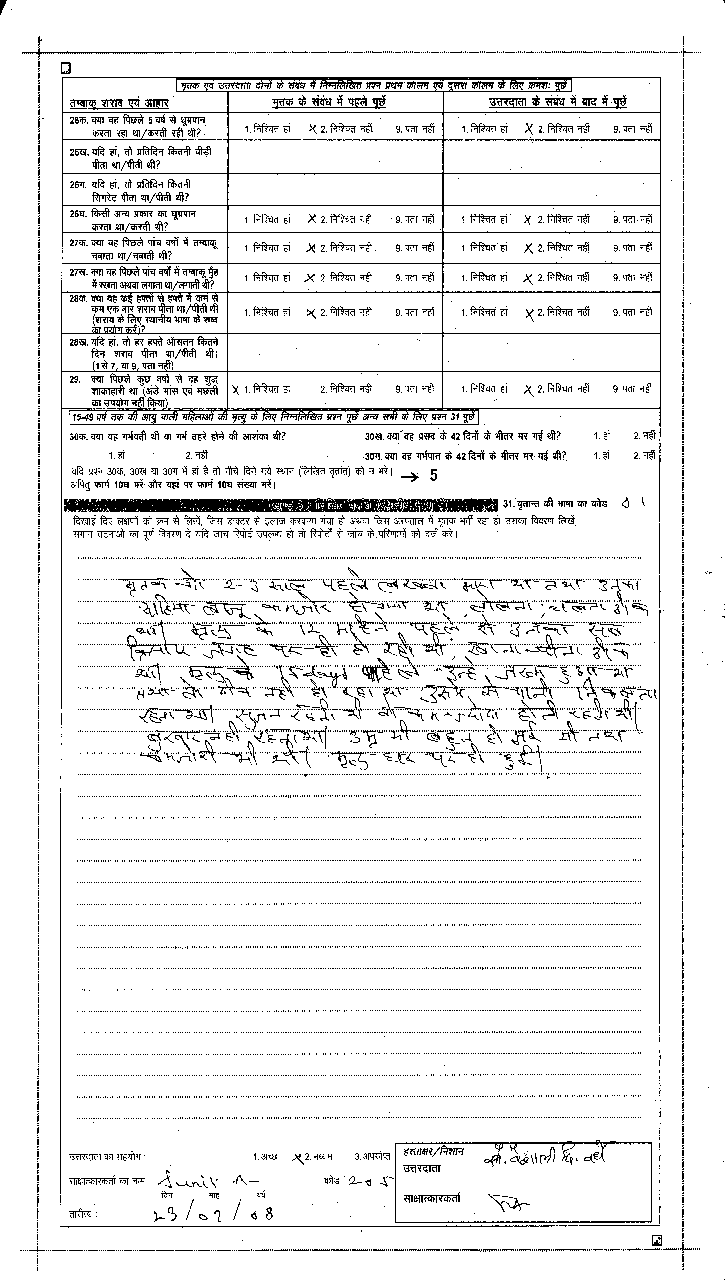 मृतक एवं उत्तरदाता दोनों के संबंध में निम्नलिखित प्रश्न प्रथम कालम एवं दूसरा कालम के लिए क्रमशः पूछें
तम्बाकू शराब एवं आहार मृतक के संबंध में पहले पूछें उत्तरदाता के संबंध में बाद में पूछें
26क. क्या वह पिछले 5 वर्ष से धूम्रपान
करता रहा था/करती रही थी? 1. निश्चित हां X 2. निश्चित नहीं 9. पता नहीं 1. निश्चित हां X 2. निश्चित नहीं 9. पता नहीं
26ख. यदि हां, तो प्रतिदिन कितनी बीड़ी
पीता था/पीती थी?
26ग. यदि हां, तो प्रतिदिन कितनी
सिगरेट पीता था/पीती थी?
26घ. किसी अन्य प्रकार का धूम्रपान
करता था/करती थी? 1. निश्चित हां X 2. निश्चित नहीं 9. पता नहीं 1. निश्चित हां X 2. निश्चित नहीं 9. पता नहीं
27क. क्या वह पिछले पांच वर्षों में तम्बाकू
चबाता था/चबाती थी? 1. निश्चित हां X 2. निश्चित नहीं 9. पता नहीं 1. निश्चित हां X 2. निश्चित नहीं 9. पता नहीं
27ख. क्या वह पिछले पांच वर्षों में तम्बाकू मुँह
में रखता अथवा लगाता था/लगाती थी? 1. निश्चित हां X 2. निश्चित नहीं 9. पता नहीं 1. निश्चित हां X 2. निश्चित नहीं 9. पता नहीं
28क. क्या वह कई हफ्तों से हफ्ते में कम से
कम एक बार शराब पीता था/पीती थी
(शराब के लिए स्थानीय भाषा के शब्द
का प्रयोग करें)? 1. निश्चित हां X 2. निश्चित नहीं 9. पता नहीं 1. निश्चित हां X 2. निश्चित नहीं 9. पता नहीं
28ख. यदि हां, तो हर हफ्ते औसतन कितने
दिन शराब पीता था/पीती थी।
(1 से 7, या 9, पता नहीं)
29. क्या पिछले कुछ वर्षों से वह शुद्ध
शाकाहारी था (अंडे मांस एवं मछली
का उपयोग नहीं किया) X 1. निश्चित हां 2. निश्चित नहीं 9. पता नहीं 1. निश्चित हां X 2. निश्चित नहीं 9 पता नहीं
15-49 वर्ष तक की आयु वाली महिलाओं की मृत्यु के लिए निम्नलिखित प्रश्न पूछें अन्य सभी के लिए प्रश्न 31 पूछें
30क. क्या वह गर्भवती थी या गर्भ ठहरे होने की आशंका थी? 30ख. क्या वह प्रसव के 42 दिनों के भीतर मर गई थी? 1. हां 2. नहीं
1. हां 2. नहीं 30ग. क्या वह गर्भपात के 42 दिनों के भीतर मर गई थी? 1. हां 2. नहीं
यदि प्रश्न 30क, 30ख या 30ग में हां है तो नीचे दिये गये स्थान (लिखित वृतांत) को न भरें। → 5
अपितु फार्म 10घ भरें और यहां पर फार्म 10घ संख्या भरें।
31. वृतान्त की भाषा का कोड 0 1
दिखाई दिए लक्षणों को क्रम से लिखें, किस डाक्टर से इलाज करवाया गया हो अथवा जिस अस्पताल में मृतक भर्ती रहा हो उसका विवरण लिखें,
समान घटनाओं का पूर्ण विवरण दें यदि जांच रिपोर्ट उपलब्ध हो तो रिपोर्टों से जांच के परिणामों को दर्ज करें।
मृतक को 2-3 साल पहले लकवा मारा था तथा उनका
बाजू कमजोर हो गया था, बोलना, चलना ठीक
था। मृत्यु के 12 महिने पहले से उनका सब
जगह पर ही हो रही थी, खाना-पीना ठीक
था। मृत्यु के 15 days पहले उन्हे जख्म हुआ था
तथा वो ठीक नही हो रहा था उसमे से पानी निकलता
रहता था। सूजन रहती थी होती रहती थी।
बुखार नही रहता था। उम्र भी बहुत हो गई थी तथा
कमजोरी भी थी। मृत्यु घर पर ही हुई।
उत्तरदाता का सहयोग: 1. अच्छा X 2. मध्यम 3. अपर्याप्त हस्ताक्षर/निशान
उत्तरदाता
साक्षात्कारकर्ता का नाम Sunil कोड 205
दिन माह वर्ष साक्षात्कारकर्ता
तारीख: 23/02/08